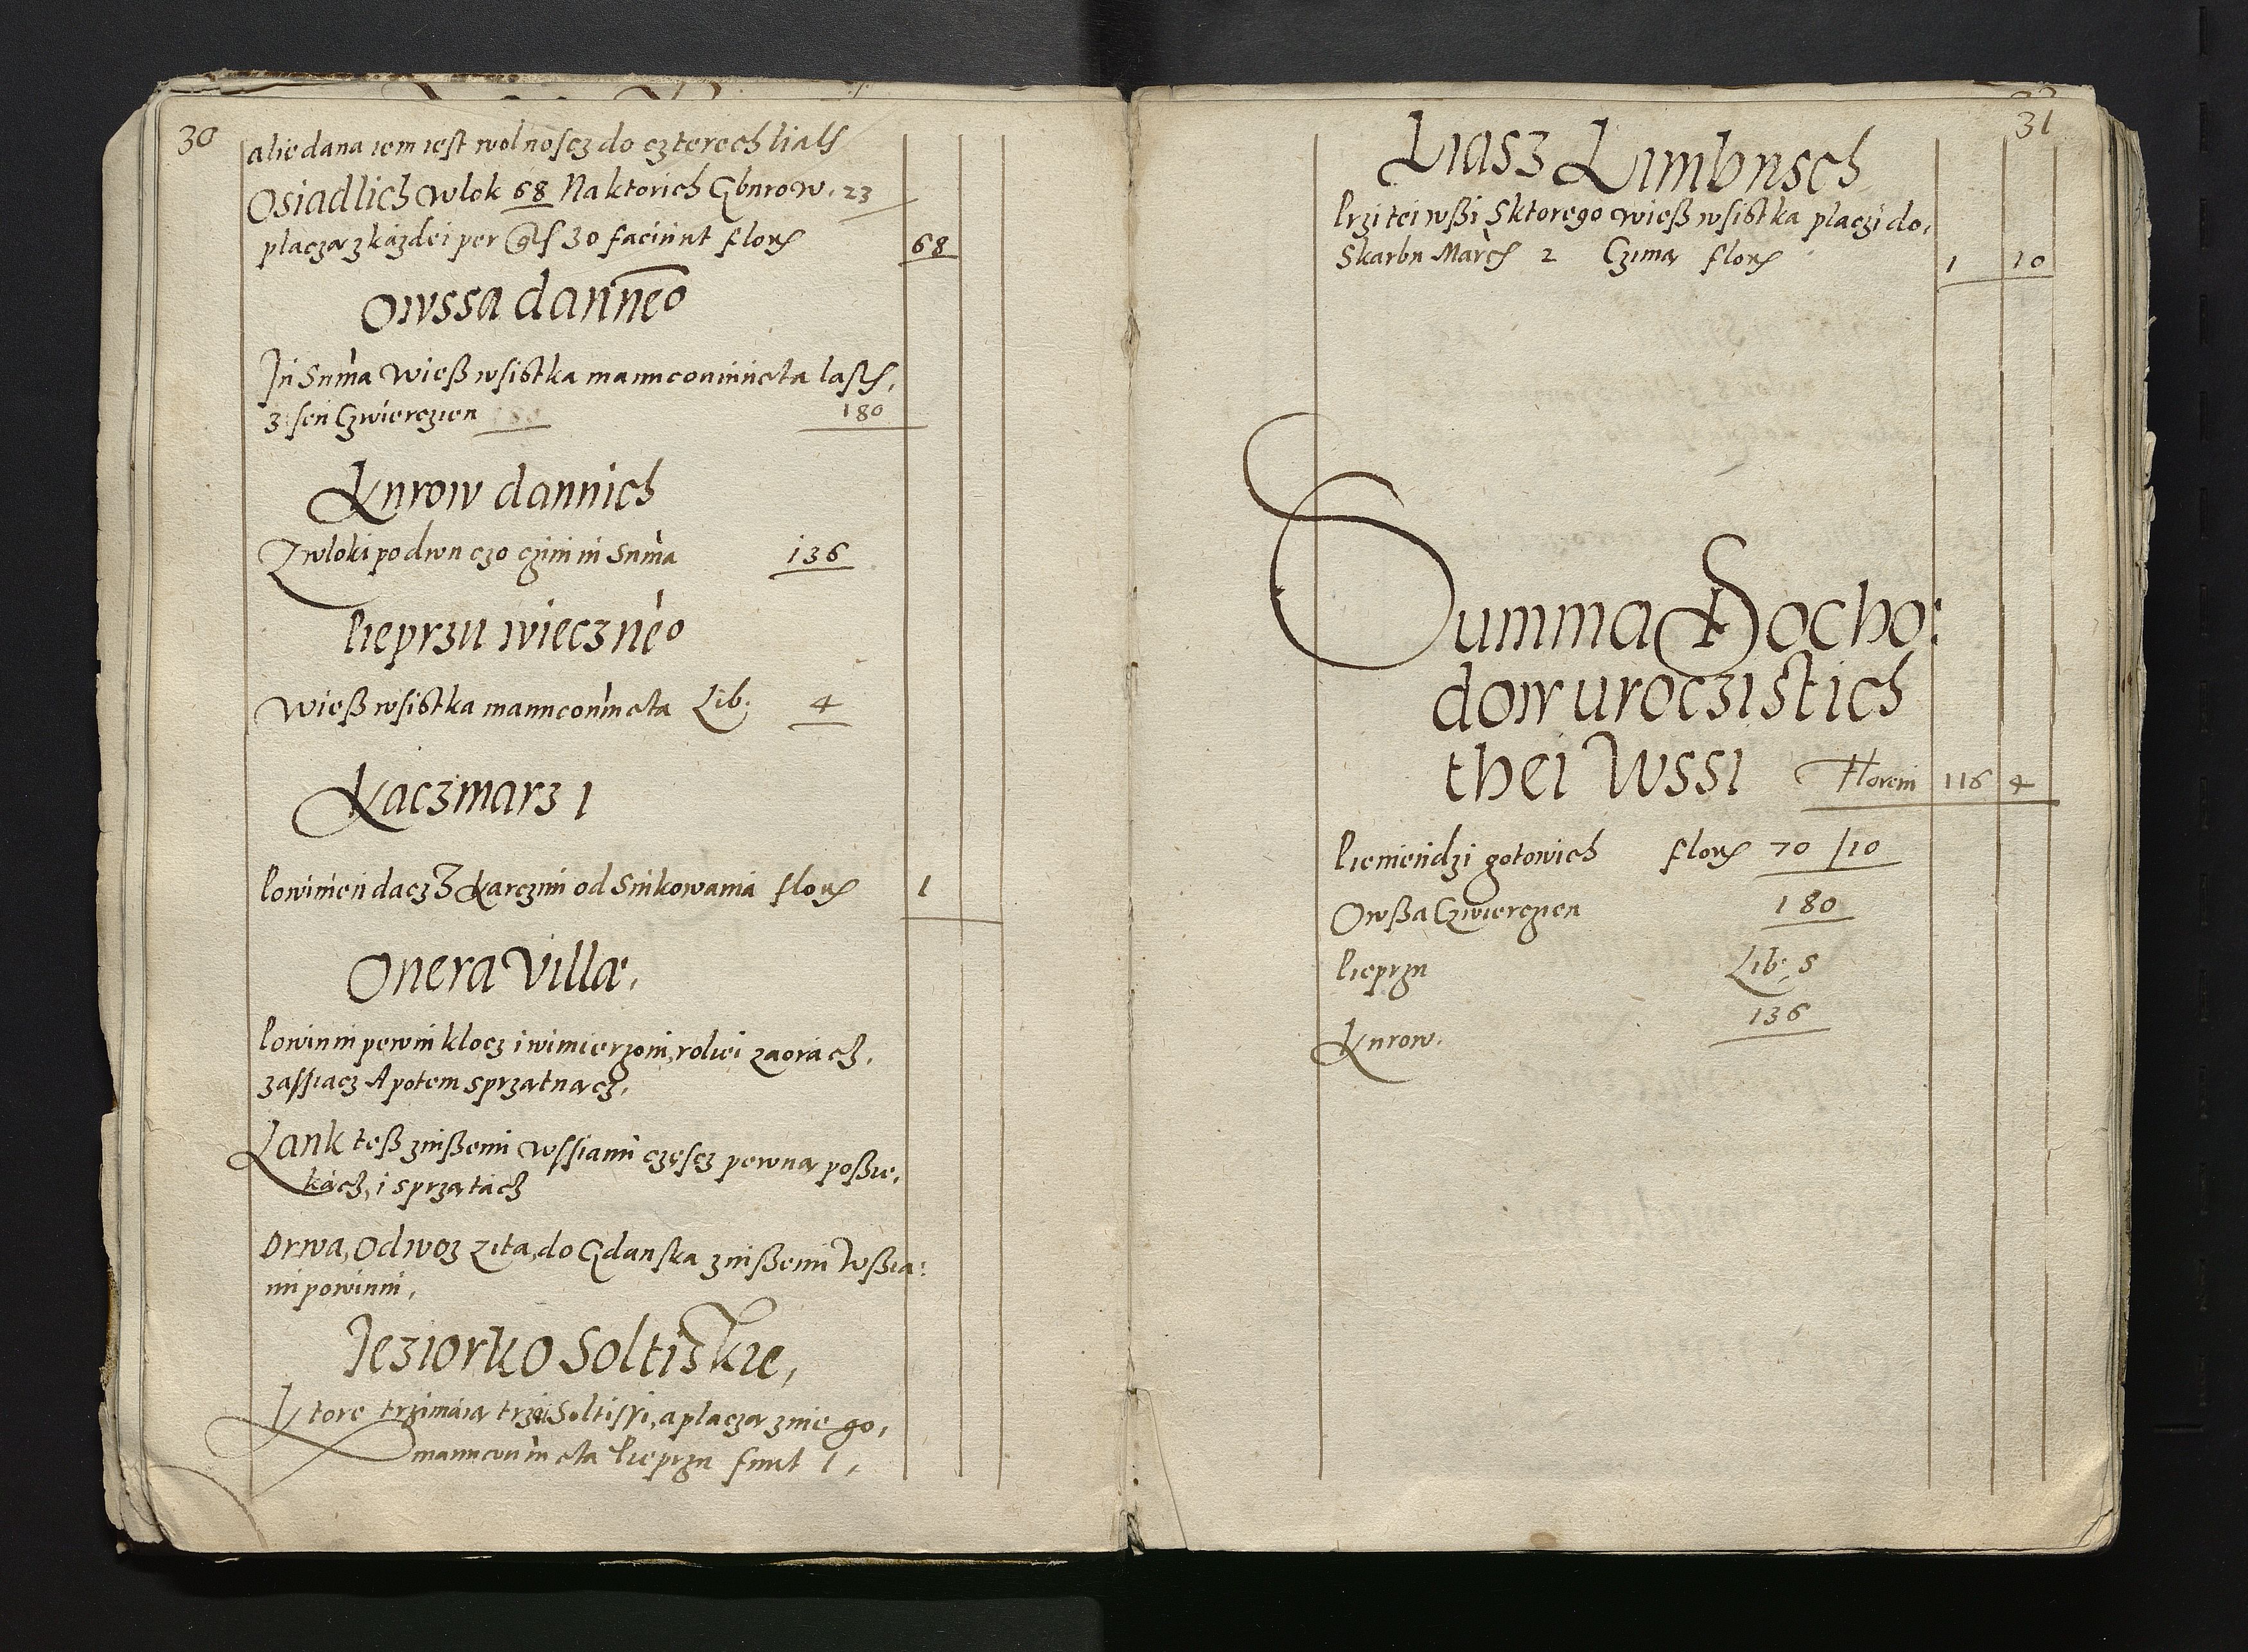 30
alie dana iem iest wolnoscz do czterech liath
Osiadlich wlok 68 Na ktorich Gburow. 23
placzą z kazdei per gs 30 faciunt flor 68
Owssa danneo
In Suma Wieß wsistka manu coniuncta last.
3: sen Czwierczien 180
Kurow dannich
Z wloki po dwu czo czini in Suma 136
Pieprzu wieczneo
Wieß wsistka manu coniuncta Lib. 4
Kaczmarz 1
Powinien dacz Z Karczmi od Sinkowania flor 1
Onera Villæ.
Powinni pewni klocz i wimierzoni, roliei zaoracz.
zassiacz A potem sprzątnącz.
Lank teß z inßemi wssiami częscz pewną poßie.
kacz, i sprzątacz
Drwa, Odwoz Zita, do Gdanska z inßemi Wßia:
mi powinni.
Jeziorko Soltiskie,
Ktore trzimaią trzei Soltissi, a placzą z niego,
manu coniuncta Pieprzu funt 1,
31
Liasz Limbusch
Przi tei wßi S ktorego wieß wsistka placzi do.
Skarbu Marcs 2 Czimą flor 1 10
Summa Docho:
dow uroczistich
thei Wssi Floreni 116 4
Pieniendzi gotowich flor 70 / 10
Owßa Czwierczien 180
Pieprzu Lib: 5
Kurow. 136